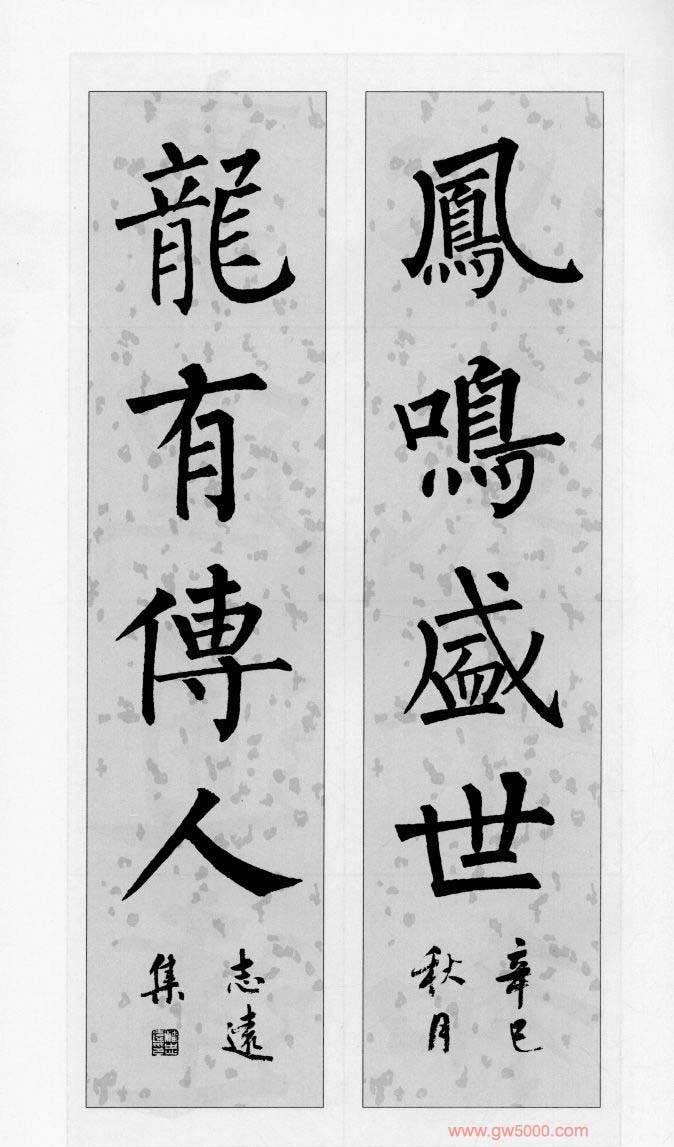 鳳鳴盛世
辛巳
秋月
龍有傳人
志遠
集
www.gw5000.com